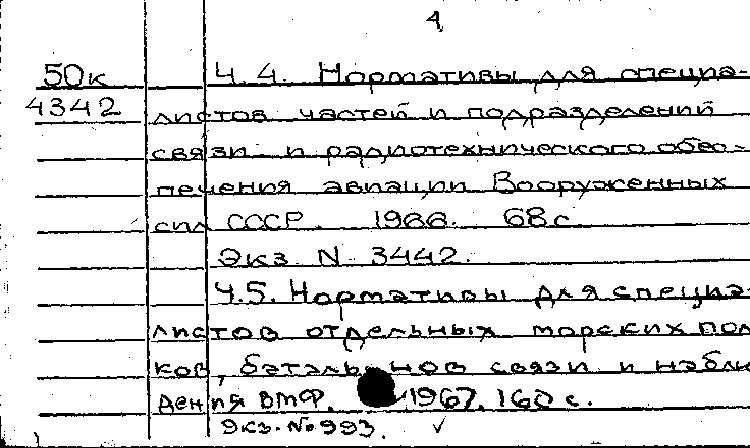 4
50к Ч.4. Нормативы для специа-
4342 листов частей и подразделений
связи и радиотехнического обес-
печения авиации Вооруженных
сил СССР. 1966. 68с.
Экз N 3442.
Ч.5. Нормативы для специа-
листов отдельных морских пол
ков, батальонов связи и наблю
дения ВМФ. 1967. 160 с.
Экз. № 993. ✓